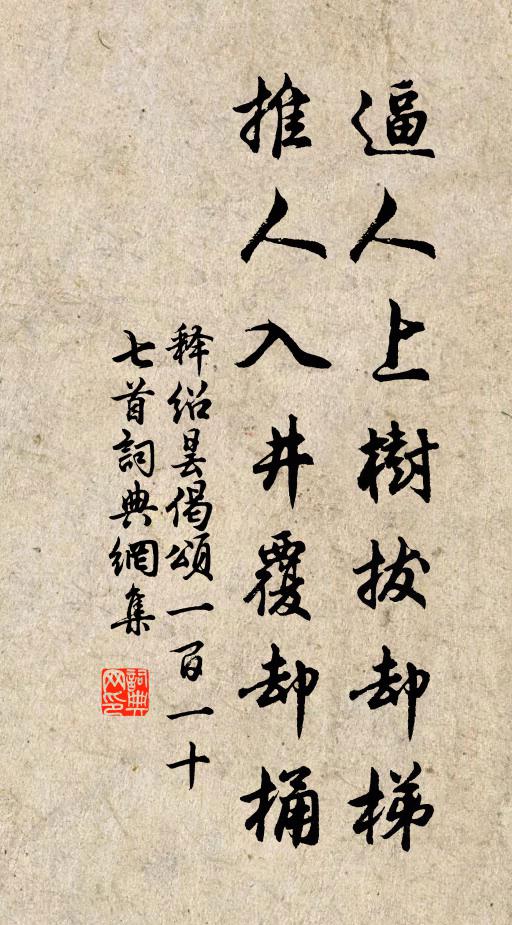 逼人上樹拔却梯
推人入井覆却桶
释绍昙偈頌一百一十
七首詞典網集
詞典
网印